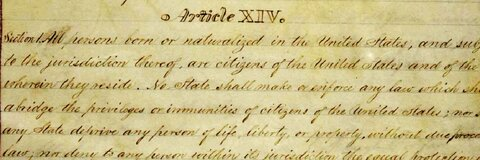 Article XIV.
Section 1. All persons born or naturalized in the United States, and su
to the jurisdiction thereof, are citizens of the United States and of the
wherein they reside. No State shall make or enforce any law which sh
abridge the privileges or immunities of citizens of the United States; nor s
any State deprive any person of life, liberty, or property, without due proce
law; nor deny to any person within its jurisdiction the equal protection